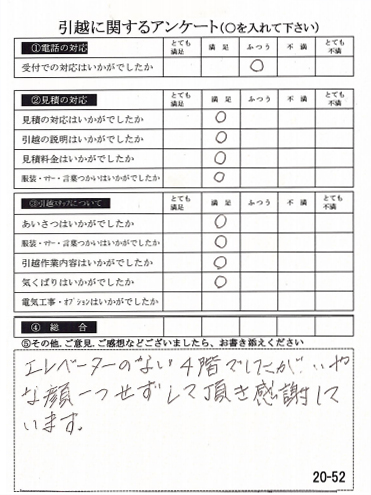 引越に関するアンケート(○を入れて下さい)
①電話の対応 とても満足 満足 ふつう 不満 とても不満
受付での対応はいかがでしたか ○
②見積の対応 とても満足 満足 ふつう 不満 とても不満
見積の対応はいかがでしたか ○
引越の説明はいかがでしたか ○
見積料金はいかがでしたか ○
服装・マナー・言葉つかいはいかがでしたか ○
③引越スタッフについて とても満足 満足 ふつう 不満 とても不満
あいさつはいかがでしたか ○
服装・マナー・言葉つかいはいかがでしたか ○
引越作業内容はいかがでしたか ○
気くばりはいかがでしたか ○
電気工事・オプションはいかがでしたか
④ 総 合
⑤その他、ご意見、ご感想などございましたら、お書き添えください
エレベーターのない4階でしたが、いや
な顔一つせずして頂き感謝して
います。
20-52